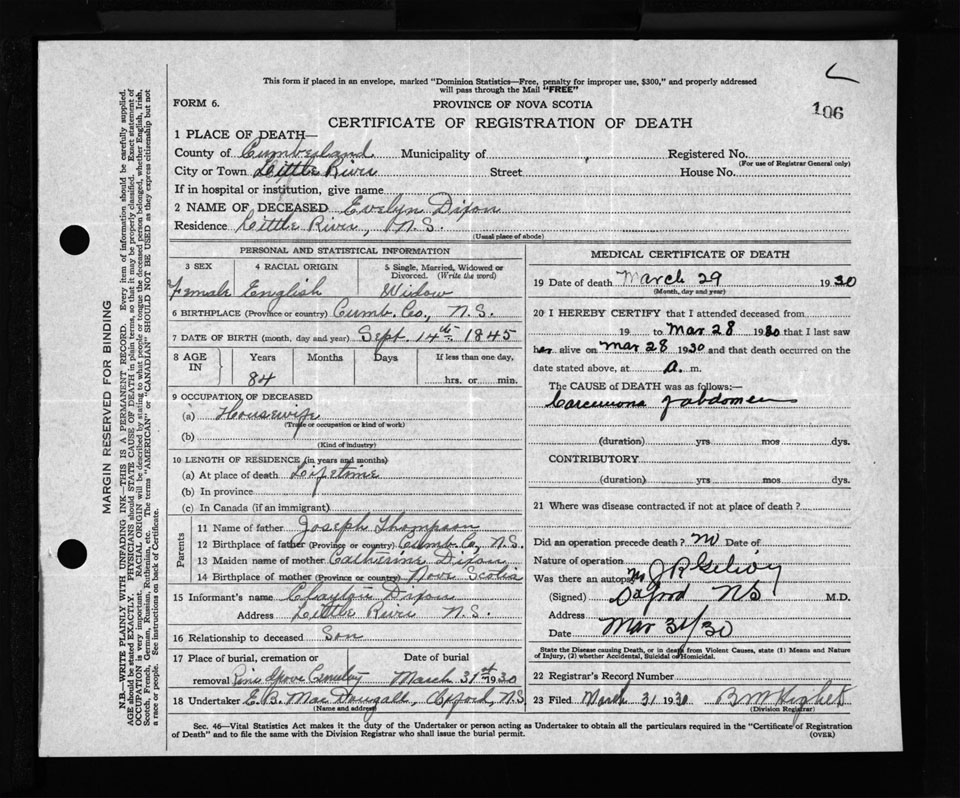 This form if placed in an envelope, marked "Dominion Statistics—Free, penalty for improper use, $300," and properly addressed
will pass through the Mail "FREE"
106
FORM 6.
PROVINCE OF NOVA SCOTIA
CERTIFICATE OF REGISTRATION OF DEATH
1 PLACE OF DEATH—
County of Cumberland Municipality of Registered No.
(For use of Registrar General only)
City or Town Little River Street House No.
If in hospital or institution, give name
2 NAME OF DECEASED Evelyn Dixon
Residence Little River, N.S.
(Usual place of abode)
PERSONAL AND STATISTICAL INFORMATION
3 SEX 4 RACIAL ORIGIN 5 Single, Married, Widowed or
Divorced. (Write the word)
Female English Widow
6 BIRTHPLACE (Province or country) Cumb. Co., N.S.
7 DATE OF BIRTH (month, day and year) Sept. 14th 1845
8 AGE IN Years Months Days If less than one day,
84 hrs. or min.
9 OCCUPATION OF DECEASED
(a) Housewife
(Trade or occupation or kind of work)
(b)
(Kind of industry)
10 LENGTH OF RESIDENCE (in years and months)
(a) At place of death Lifetime
(b) In province
(c) In Canada (if an immigrant)
Parents
11 Name of father Joseph Thompson
12 Birthplace of father (Province or country) Cumb. Co., N.S.
13 Maiden name of mother Catherine Dixon
14 Birthplace of mother (Province or country) Nova Scotia
15 Informant's name Clayton Dixon
Address Little River N.S.
16 Relationship to deceased Son
17 Place of burial, cremation or Date of burial
removal Pine Grove Cemetery March 31st 1930
18 Undertaker E.B. MacDougall, Oxford, N.S.
(Name and address)
MEDICAL CERTIFICATE OF DEATH
19 Date of death March 29 1930
(Month, day and year)
20 I HEREBY CERTIFY that I attended deceased from
19 to Mar 28 1930 that I last saw
her alive on Mar 28 1930 and that death occurred on the
date stated above, at a. m.
The CAUSE of DEATH was as follows:—
Carcinoma of abdomen
(duration) yrs mos dys.
CONTRIBUTORY
(duration) yrs mos dys.
21 Where was disease contracted if not at place of death?
Did an operation precede death? no Date of
Nature of operation
Was there an autopsy No
(Signed) M.D.
Address Oxford NS
Date Mar 31/30
State the Disease causing Death, or in death from Violent Causes, state (1) Means and Nature
of Injury, (2) whether Accidental, Suicidal or Homicidal.
22 Registrar's Record Number
23 Filed March 31 1930
(Division Registrar)
Sec. 46—Vital Statistics Act makes it the duty of the Undertaker or person acting as Undertaker to obtain all the particulars required in the "Certificate of Registration
of Death" and to file the same with the Division Registrar who shall issue the burial permit.
(OVER)
MARGIN RESERVED FOR BINDING
N.B.—WRITE PLAINLY WITH UNFADING INK—THIS IS A PERMANENT RECORD. Every item of information should be carefully supplied.
AGE should be stated EXACTLY. PHYSICIANS should STATE CAUSE OF DEATH in plain terms, so that it may be properly classified. Exact statement of
OCCUPATION is very important. RACIAL ORIGIN will be described by stating to what people or tongue the deceased person belonged, whether English, Irish,
Scotch, French, German, Russian, Ruthenian, etc. The terms "AMERICAN" or "CANADIAN" SHOULD NOT BE USED as they express citizenship but not
a race or people. See instructions on back of Certificate.